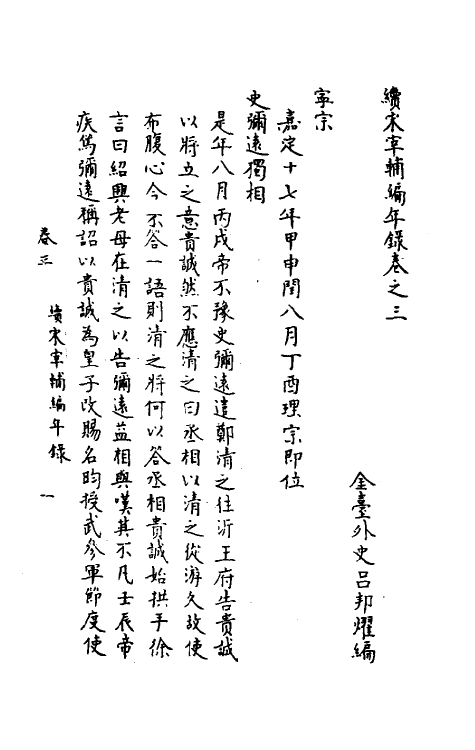 續宋宰輔編年錄卷之三
金臺外史呂邦燿編
寧宗
嘉定十七年甲申閏八月丁酉理宗即位
史彌遠獨相
是年八月丙戌帝不豫史彌遠遣鄭清之往沂王府告貴誠
以將立之意貴誠然不應清之曰丞相以清之從游久故使
布腹心今不答一語則清之將何以答丞相貴誠始拱手徐
言曰紹興老母在清之以告彌遠益相與嘆其不凡壬辰帝
疾篤彌遠稱詔以貴誠為皇子改賜名昀授武參軍節度使
卷三
續宋宰輔編年錄
一